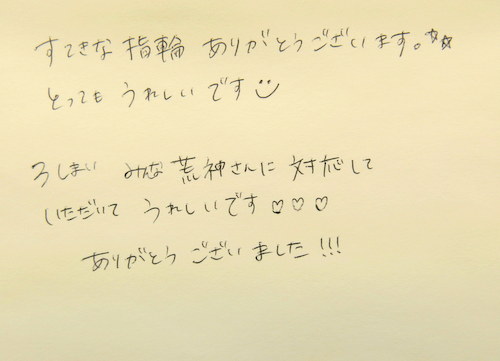 すてきな 指輪 ありがとうございます。☆☆
とっても うれしいです☺
3しまい みんな 荒神さんに 対応して
いただいて うれしいです ♡♡♡
ありがとう ございました!!!